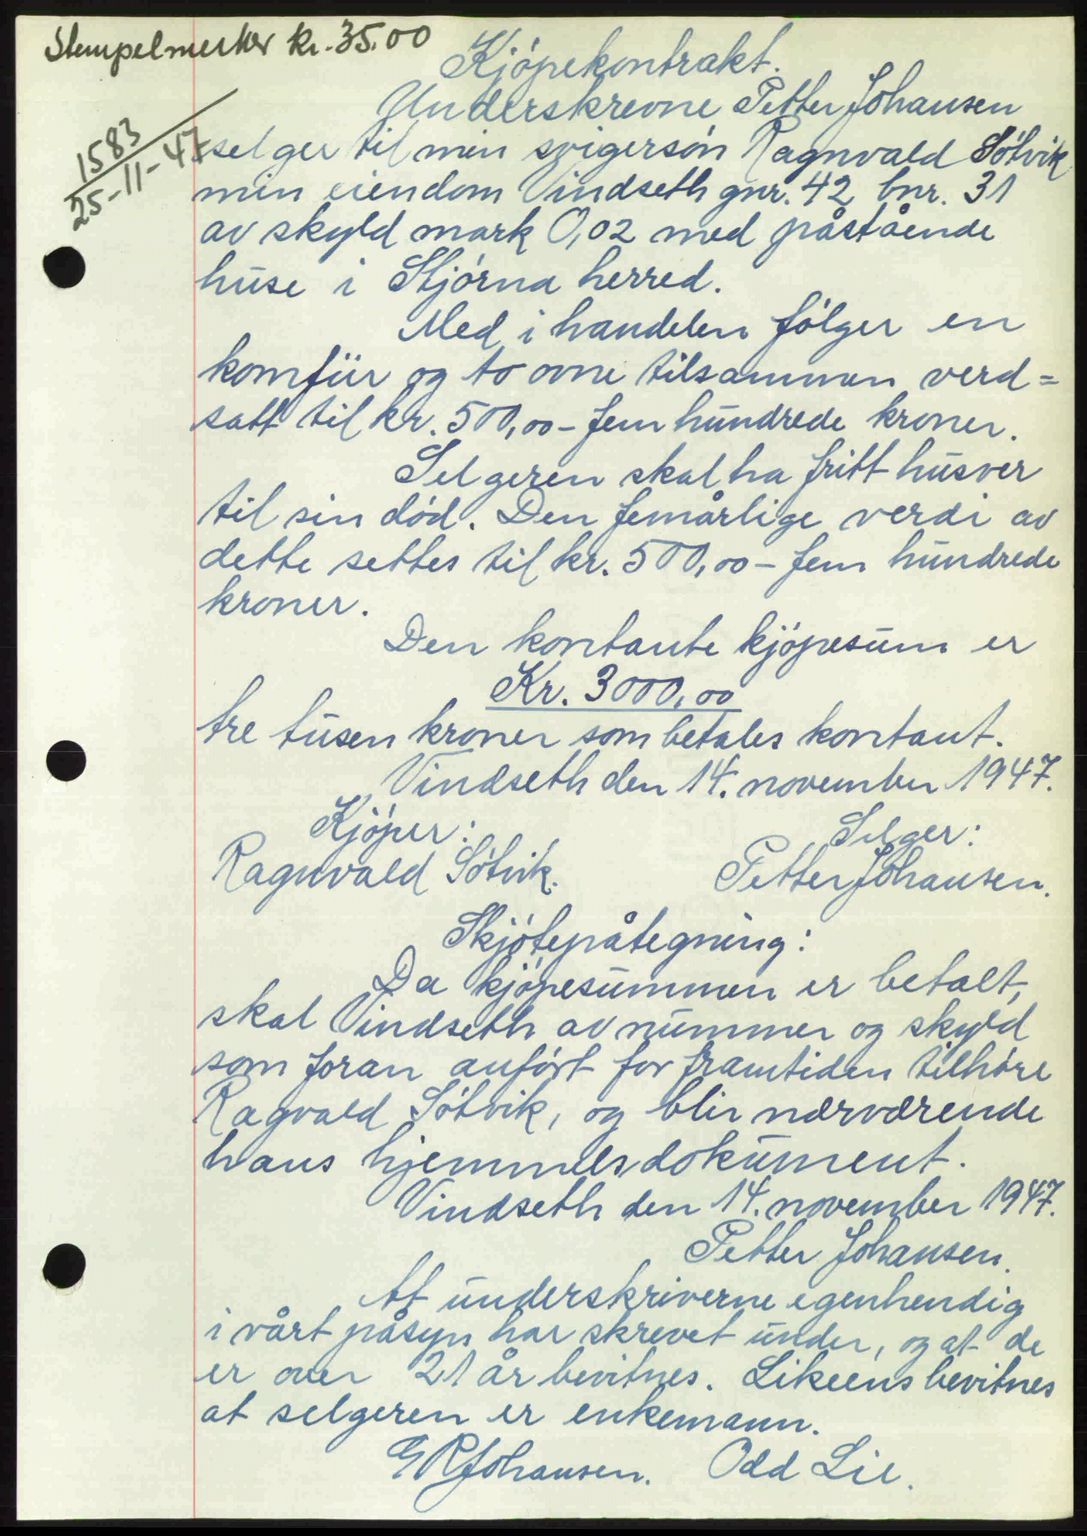 Stempelmerker kr. 35.00
1583
25-11-47
Kjópekontrakt.
Underskrevne Petter Johansen
selger til min svigersón Ragnvald Sótvik
min eiendom Vindseth gnr. 42 bnr. 31
av skyld mark 0,02 med påstående
huse i Stjórna herred.
Med i handelen fólger en
komfür og to ovne tilsammen verd=
satt til kr. 500,00 - fem hundrede kroner.
Selgeren skal ha fritt husver
til sin död. Den femårlige verdi av
dette settes til kr. 500,00 - fem hundrede
kroner.
Den kontante kjópesum er
Kr. 3000,00
tre tusen kroner som betales kontant.
Vindseth den 14. november 1947.
Kjóper: Selger:
Ragnvald Sótvik. Petter Johansen.
Skjótepåtegning:
Da kjópesummen er betalt,
skal Vindseth av nummer og skyld
som foran anfórt for framtiden tilhóre
Ragvald Sótvik, og blir nærværende
hans hjemmelsdokument.
Vindseth den 14. november 1947.
Petter Johansen.
At underskriverne egenhendig
i vårt påsyn har skrevet under, og at de
er over 21 år bevitnes. Likeens bevitnes
at selgeren er enkemann.
G R Johansen. Odd Lie.